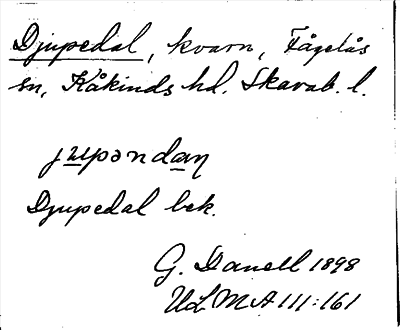 Djupedal, kvarn, Fågelås
sn, Kåkinds hd. Skarab. l.
jupəndaŋ
Djupedal bek.
G. Danell 1898
ULMA 111:161